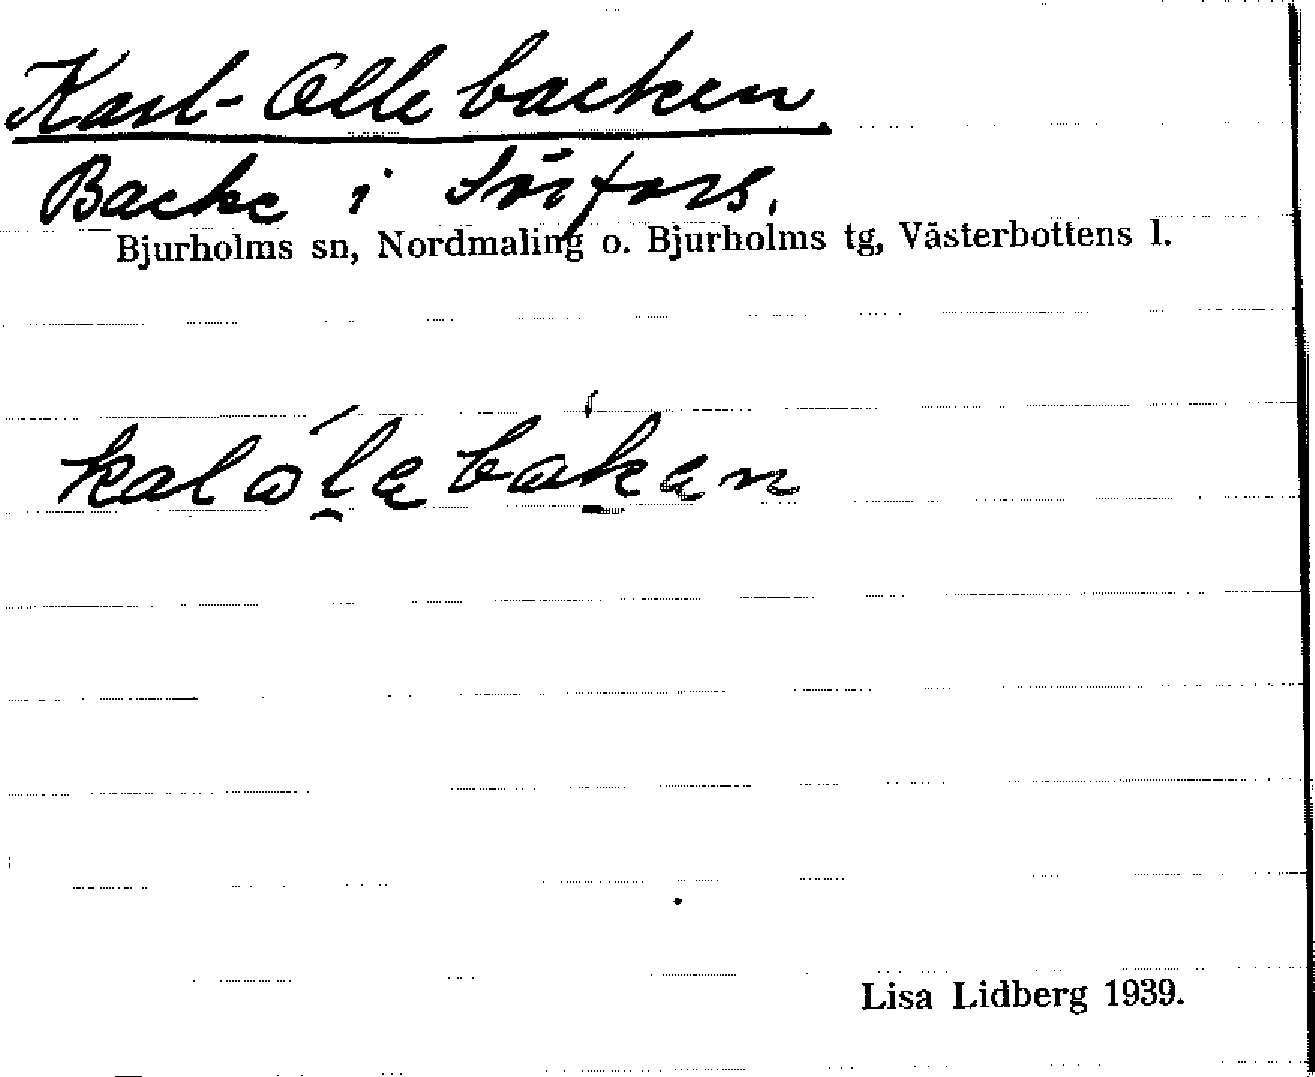 Karl-Olle backen.
Backe i
Bjurholms sn, Nordmaling o. Bjurholms tg, Västerbottens l.
Lisa Lidberg 1939.